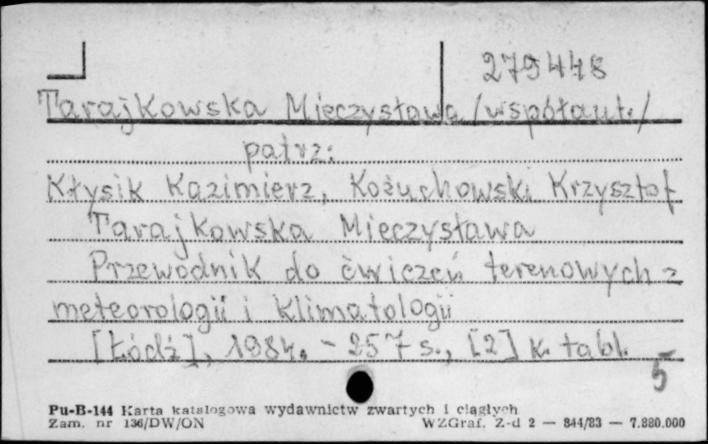 279448
Tarajkowska Mieczysława /współaut./
patrz:
Kłysik Kazimierz, Kożuchowski Krzysztof
Tarajkowska Mieczysława
Przewodnik do ćwiczeń terenowych z
meteorologii i klimatologii
[Łódź], 1984. - 257 s., [2] k. tabl.
5
Pu-B-144 Karta katalogowa wydawnictw zwartych i ciągłych
Zam. nr 136/DW/ON WZGraf. Z-d 2 — 844/83 — 7.880.000